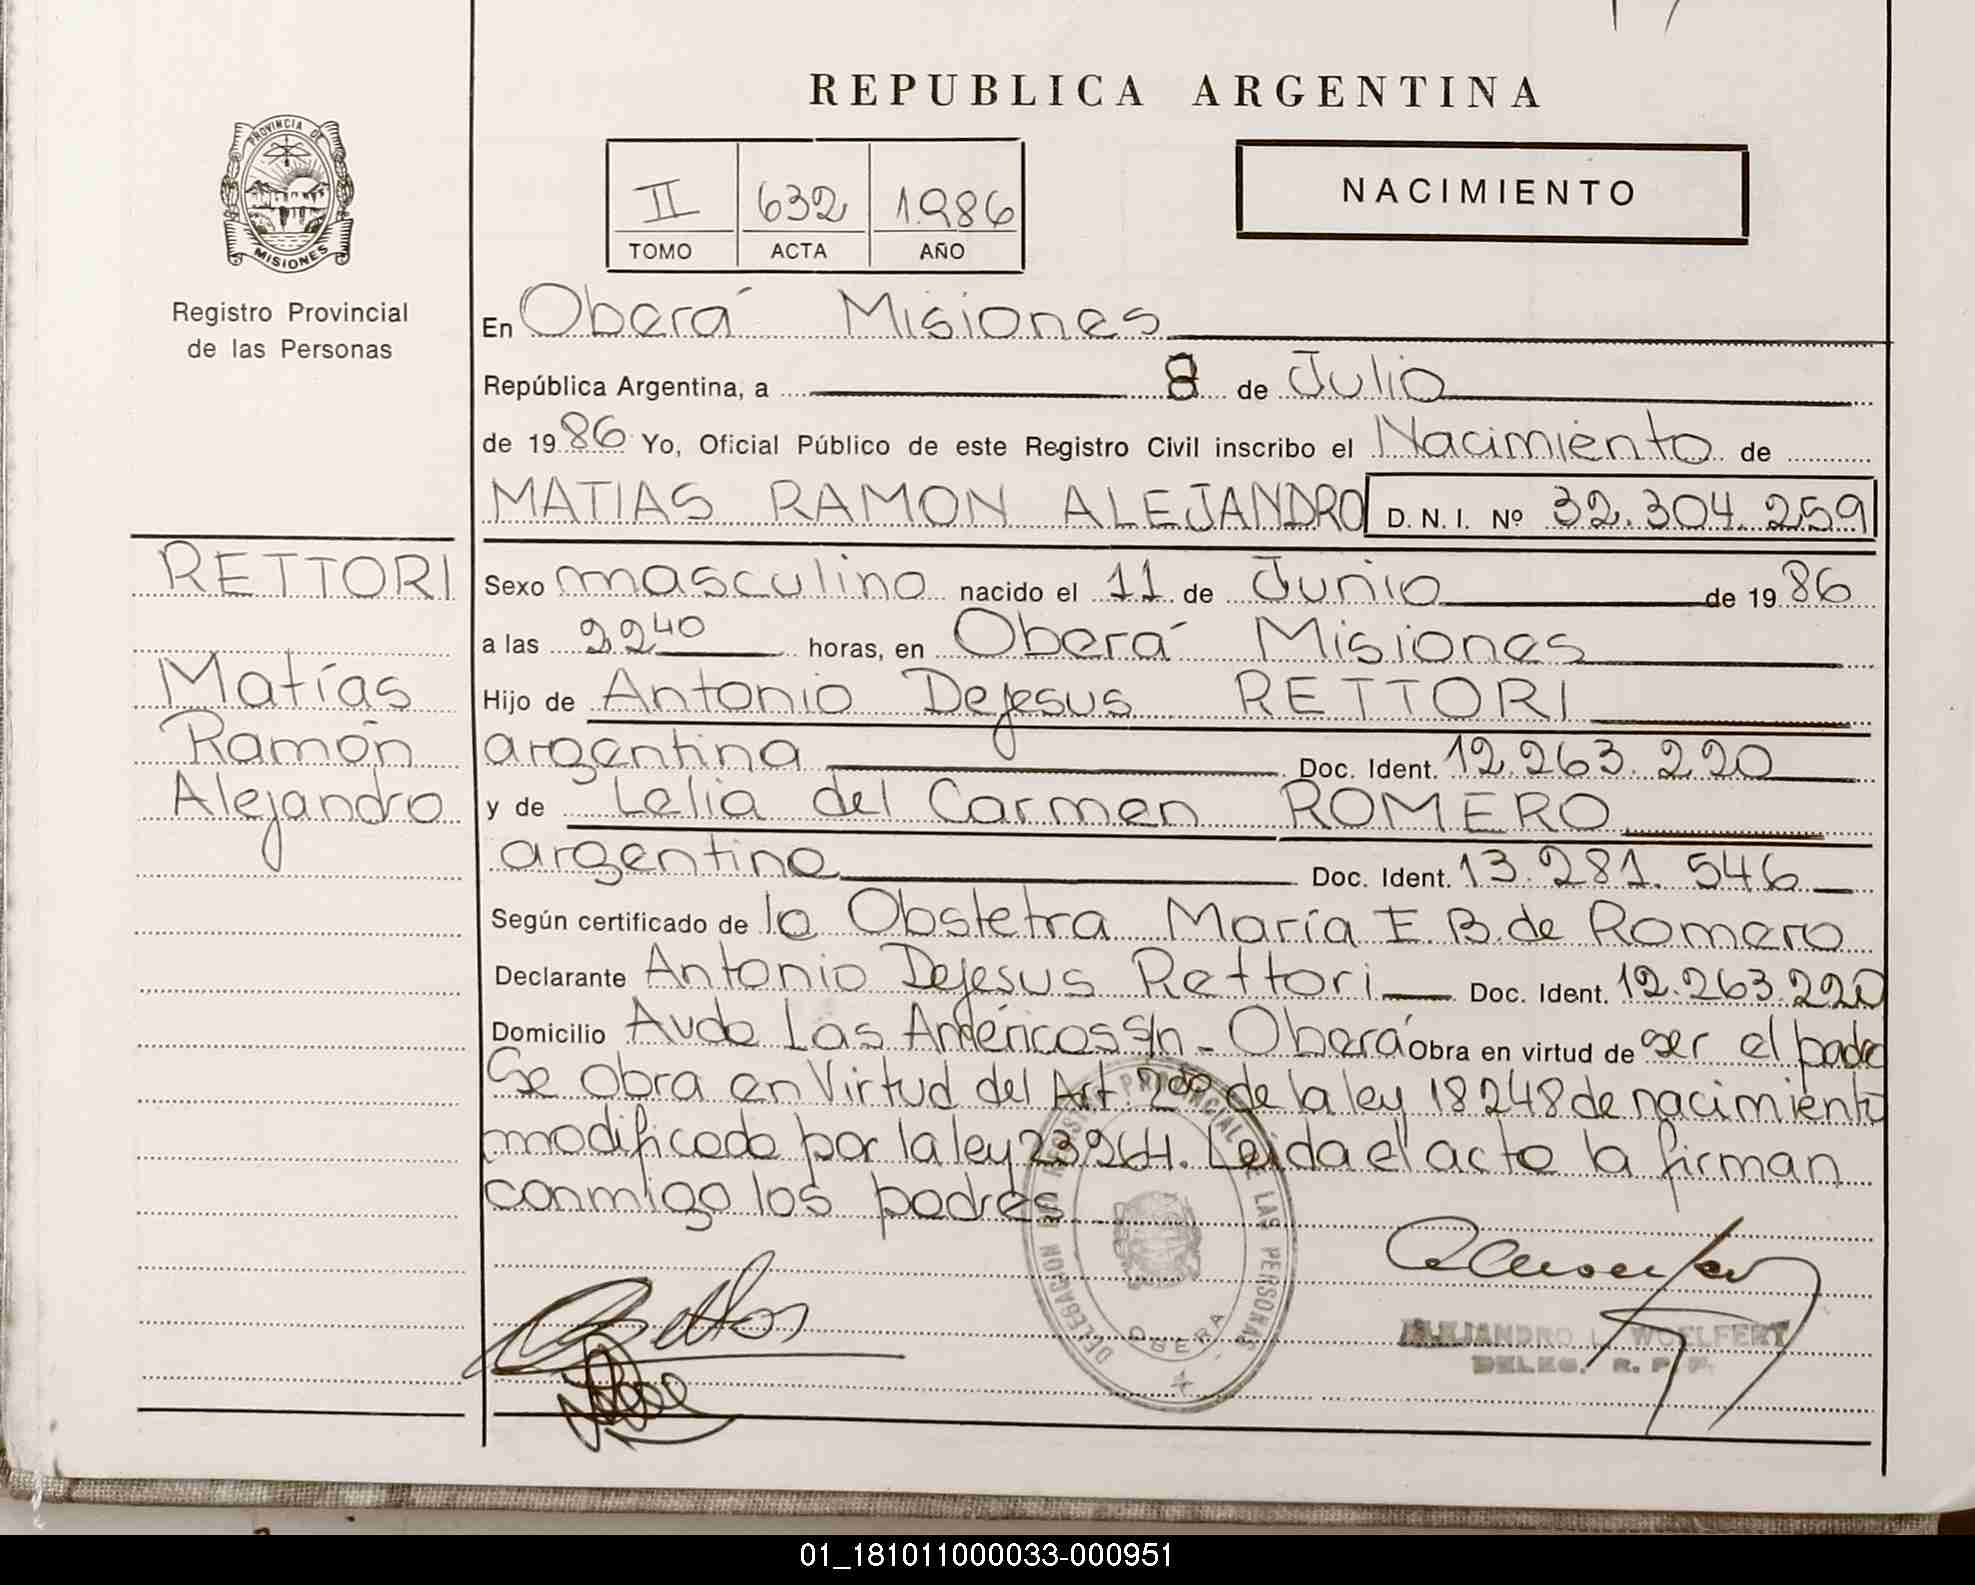 REPUBLICA ARGENTINA
PROVINCIA DE
MISIONES
Registro Provincial
de las Personas
II 632 1986
TOMO ACTA AÑO
NACIMIENTO
En Oberá Misiones
República Argentina, a 8 de Julio
de 1986 Yo, Oficial Público de este Registro Civil inscribo el Nacimiento de
MATIAS RAMON ALEJANDRO D. N. I. Nº 32.304.259
RETTORI
Matías
Ramón
Alejandro
Sexo masculino nacido el 11 de Junio de 1986
a las 22 40 horas, en Oberá Misiones
Hijo de Antonio Dejesus RETTORI
argentina Doc. Ident. 12.263.220
y de Lelia del Carmen ROMERO
argentina Doc. Ident. 13.281.546
Según certificado de la Obstetra María E B. de Romero
Declarante Antonio Dejesus Rettori Doc. Ident. 12.263.220
Domicilio Avda Las Américas s/n - Oberá Obra en virtud de ser el padre
Se obra en Virtud del Art. 2do de la ley 18248 de nacimiento
modificado por la ley 23264. Leída el acta la firman
conmigo los padres
DELEGACION DEL REGISTRO PROVINCIAL DE LAS PERSONAS
OBERA
ALEJANDRO L. WOELFERT
DELEG. R. P. P.
01_181011000033-000951